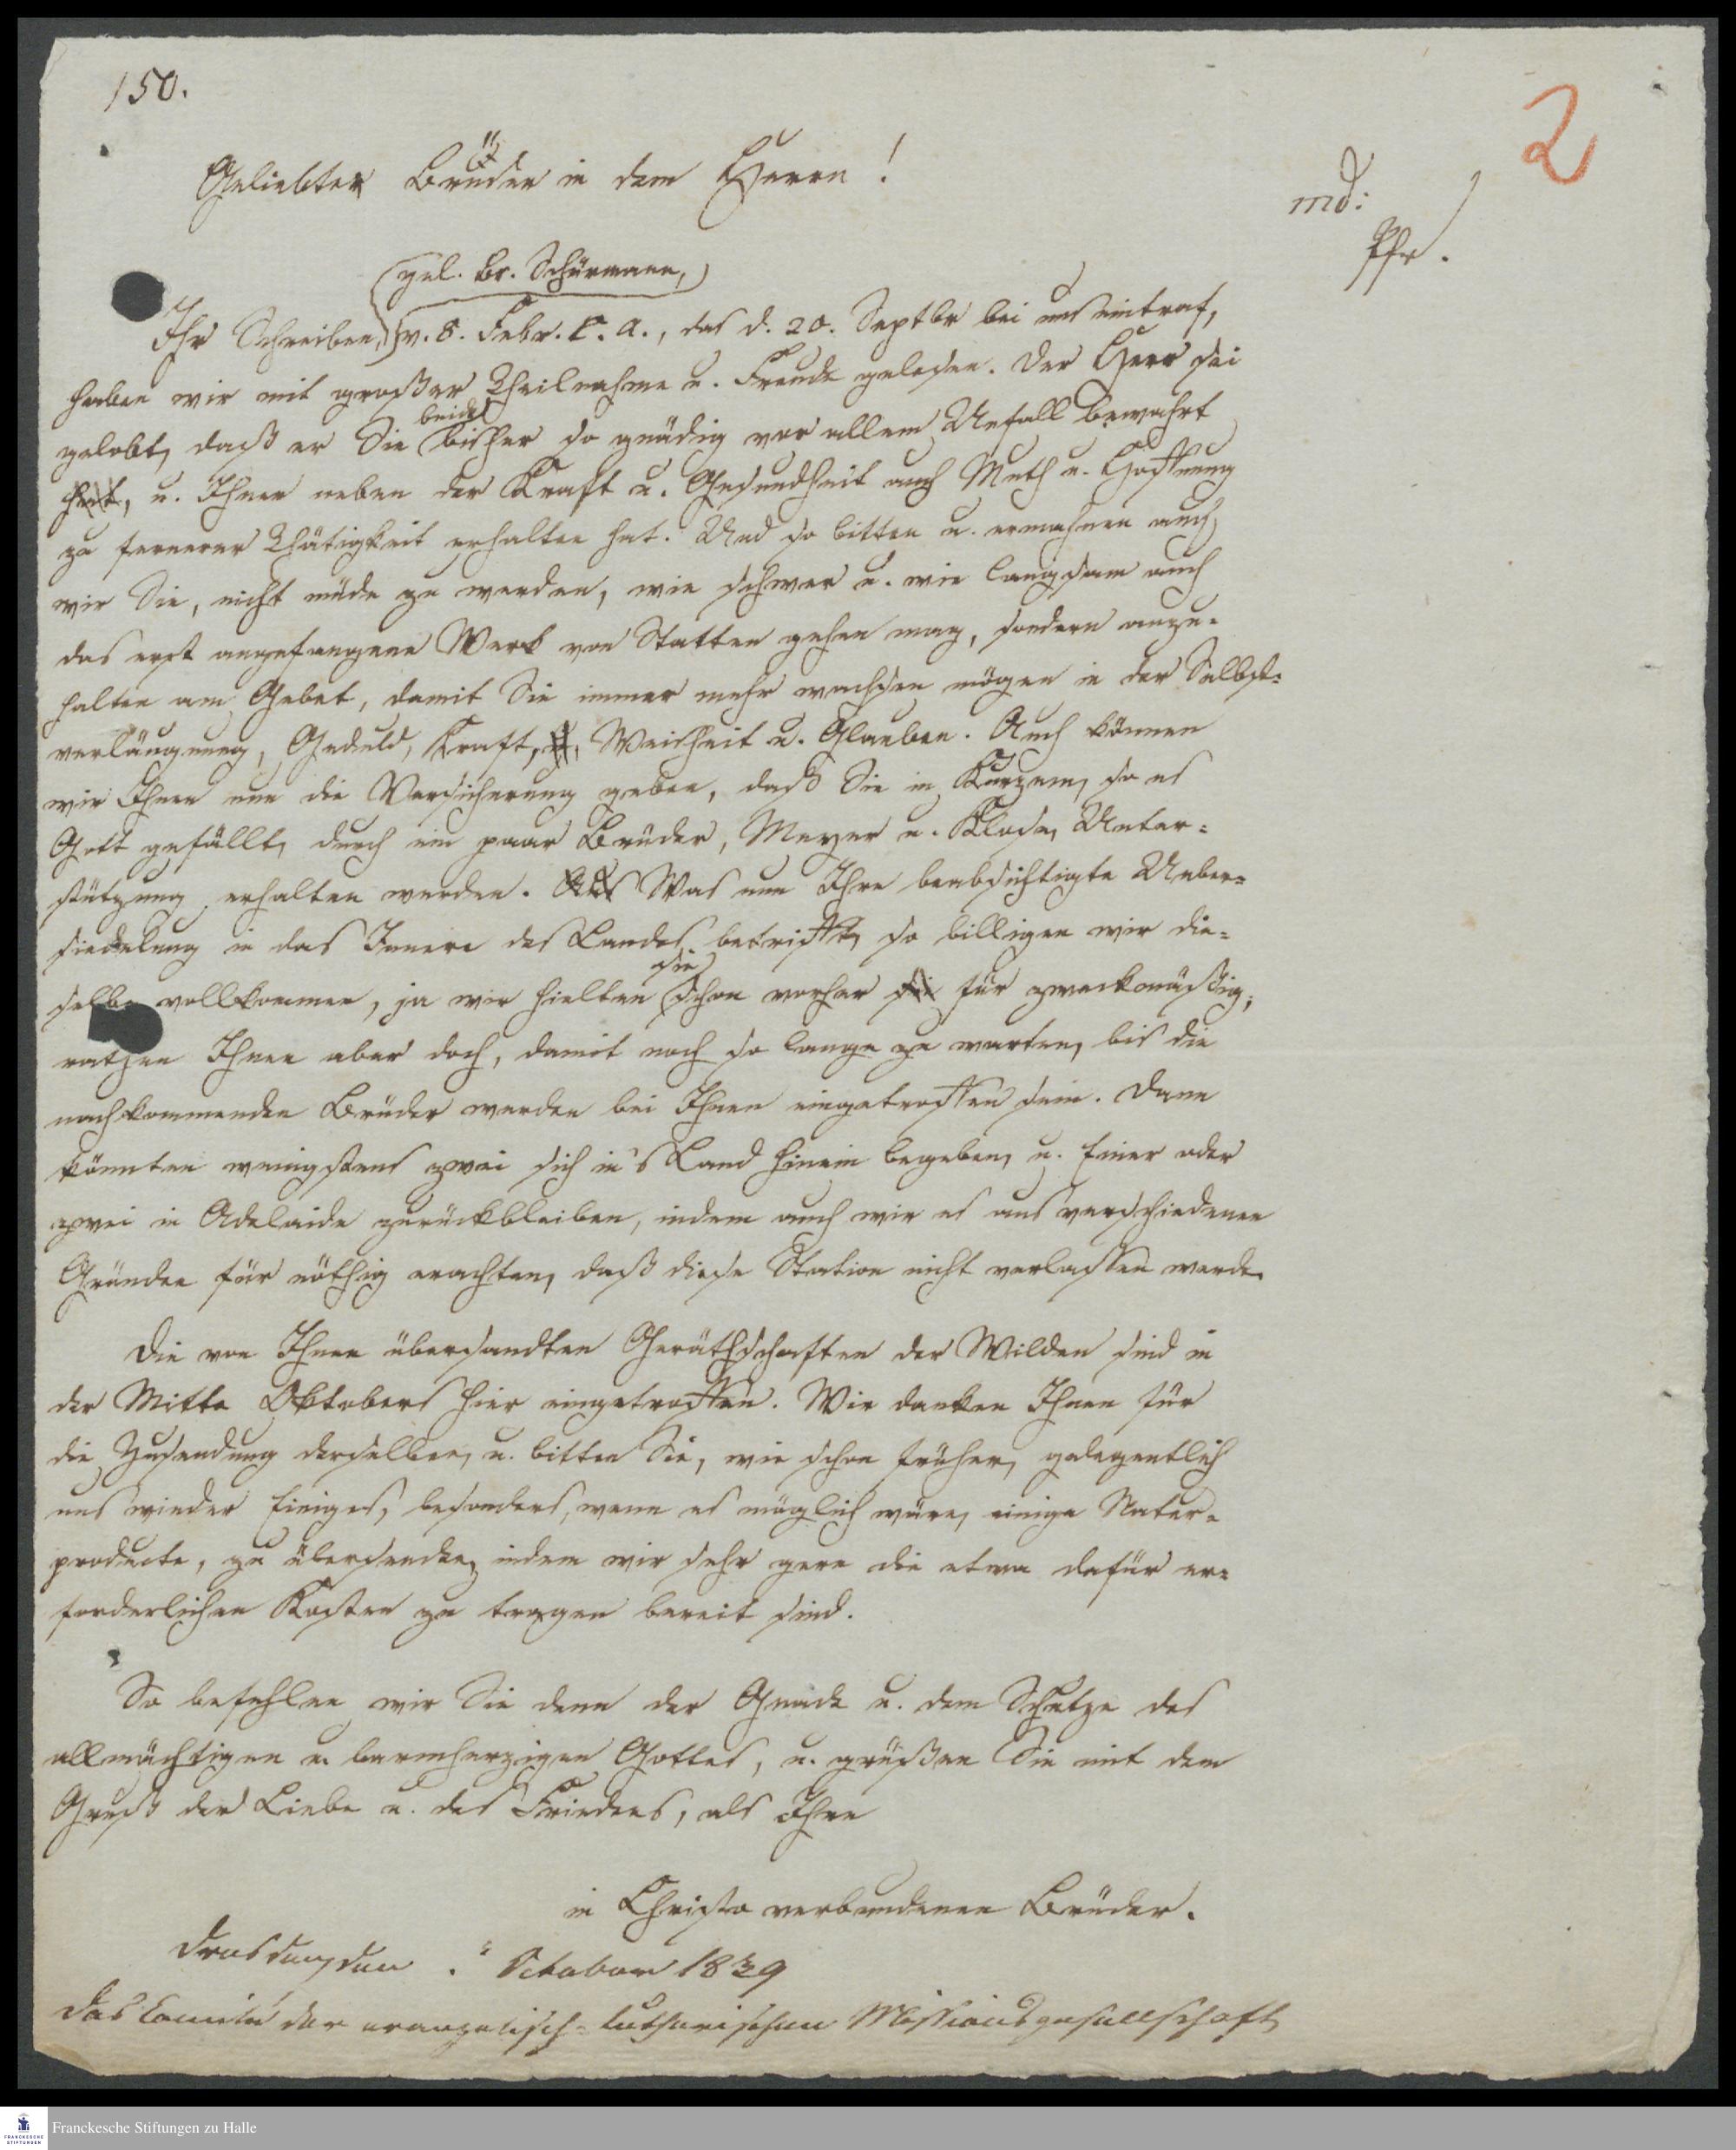 150.
2
Geliebte Brüder in dem Herrn!
md:
Pfr.
(gel. Br. Schürmann,)
Ihr Schreiben, v. 8. Febr. c. a., das d. 20. Septbr bei uns eintraf,
haben wir mit großer Theilnahme u. Freude gelesen. Der Herr sei
beide
gelobt, daß er Sie bisher so gnädig vor allem Unfall bewahrt
hat, u. Ihnen neben der Kraft u. Gesundheit auch Muth u. Hoffnung
zu fernerer Thätigkeit erhalten hat. Und so bitten u. ermahnen auch
wir Sie, nicht müde zu werden, wie schwer u. wie langsam auch
das erst angefangene Werk von Statten gehen mag, sondern anzu-
halten am Gebet, damit Sie immer mehr wachsen mögen in der Selbst-
verläugnung, Geduld, Kraft, u. Weisheit u. Glauben. Auch können
wir Ihnen nun die Versicherung geben, daß Sie in Kurzem, so es
Gott gefällt, durch ein paar Brüder, Meyer u. Klose, Unter-
stützung erhalten werden. Was nun Ihre beabsichtigte Ueber-
siedelung in das Innere des Landes betrifft, so billigen wir die-
sie
selbe vollkommen, ja wir hielten schon vorher sie für zweckmäßig,
rathen Ihnen aber doch, damit noch so lange zu warten, bis die
nachkommenden Brüder werden bei Ihnen eingetroffen sein. Dann
könnten wenigstens zwei sich in's Land hinein begeben, u. Einer oder
zwei in Adelaide zurückbleiben, indem auch wir es aus verschiedenen
Gründen für nöthig erachten, daß diese Station nicht verlassen werde.
Die von Ihnen übersandten Geräthschaften der Wilden sind in
der Mitte Oktobers hier eingetroffen. Wir danken Ihnen für
die Zusendung derselben, u. bitten Sie, wie schon früher, gelegentlich
uns wieder Einiges, besonders, wenn es möglich wäre, einige Natur-
producte, zu übersenden, indem wir sehr gern die etwa dafür er-
forderlichen Kosten zu tragen bereit sind.
So befehlen wir Sie denn der Gnade u. dem Schutze des
allmächtigen u. barmherzigen Gottes, u. grüßen Sie mit dem
Gruß der Liebe u. des Friedens, als Ihre
in Christo verbundenen Brüder.
Dresden, den . October 1839
Das Comité der evangelisch-lutherischen Missionsgesellschaft
FRANCKESCHE
STIFTUNGEN
Franckesche Stiftungen zu Halle